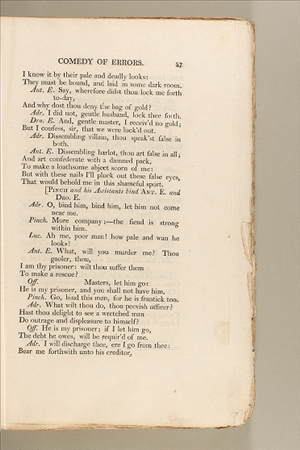 COMEDY OF ERRORS. 47
I know it by their pale and deadly looks:
They must be bound, and laid in some dark room.
Ant. E. Say, wherefore didst thou lock me forth
to-day,
And why dost thou deny the bag of gold?
Adr. I did not, gentle husband, lock thee forth.
Dro. E. And, gentle master, I receiv'd no gold;
But I confess, sir, that we were lock'd out.
Adr. Dissembling villain, thou speak'st false in
both.
Ant. E. Dissembling harlot, thou art false in all;
And art confederate with a damned pack,
To make a loathsome abject scorn of me:
But with these nails I'll pluck out these false eyes,
That would behold me in this shameful sport.
[PINCH and his Assistants bind ANT. E. and
DRO. E.
Adr. O, bind him, bind him, let him not come
near me.
Pinch. More company;—the fiend is strong
within him.
Luc. Ah me, poor man! how pale and wan he
looks!
Ant. E. What, will you murder me? Thou
gaoler, thou,
I am thy prisoner: wilt thou suffer them
To make a rescue?
Off. Masters, let him go:
He is my prisoner, and you shall not have him.
Pinch. Go, bind this man, for he is frantick too.
Adr. What wilt thou do, thou peevish officer?
Hast thou delight to see a wretched man
Do outrage and displeasure to himself?
Off. He is my prisoner; if I let him go,
The debt he owes, will be requir'd of me.
Adr. I will discharge thee, ere I go from thee:
Bear me forthwith unto his creditor,